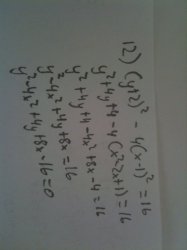 12) (y+2)² - 4(x-1)² = 16
y²+4y+4-4(x²-2x+1)=16
y²+4y+4-4x²+8x-4=16
y²-4x²+4y+8x=16
y²-4x²+4y+8x-16=0